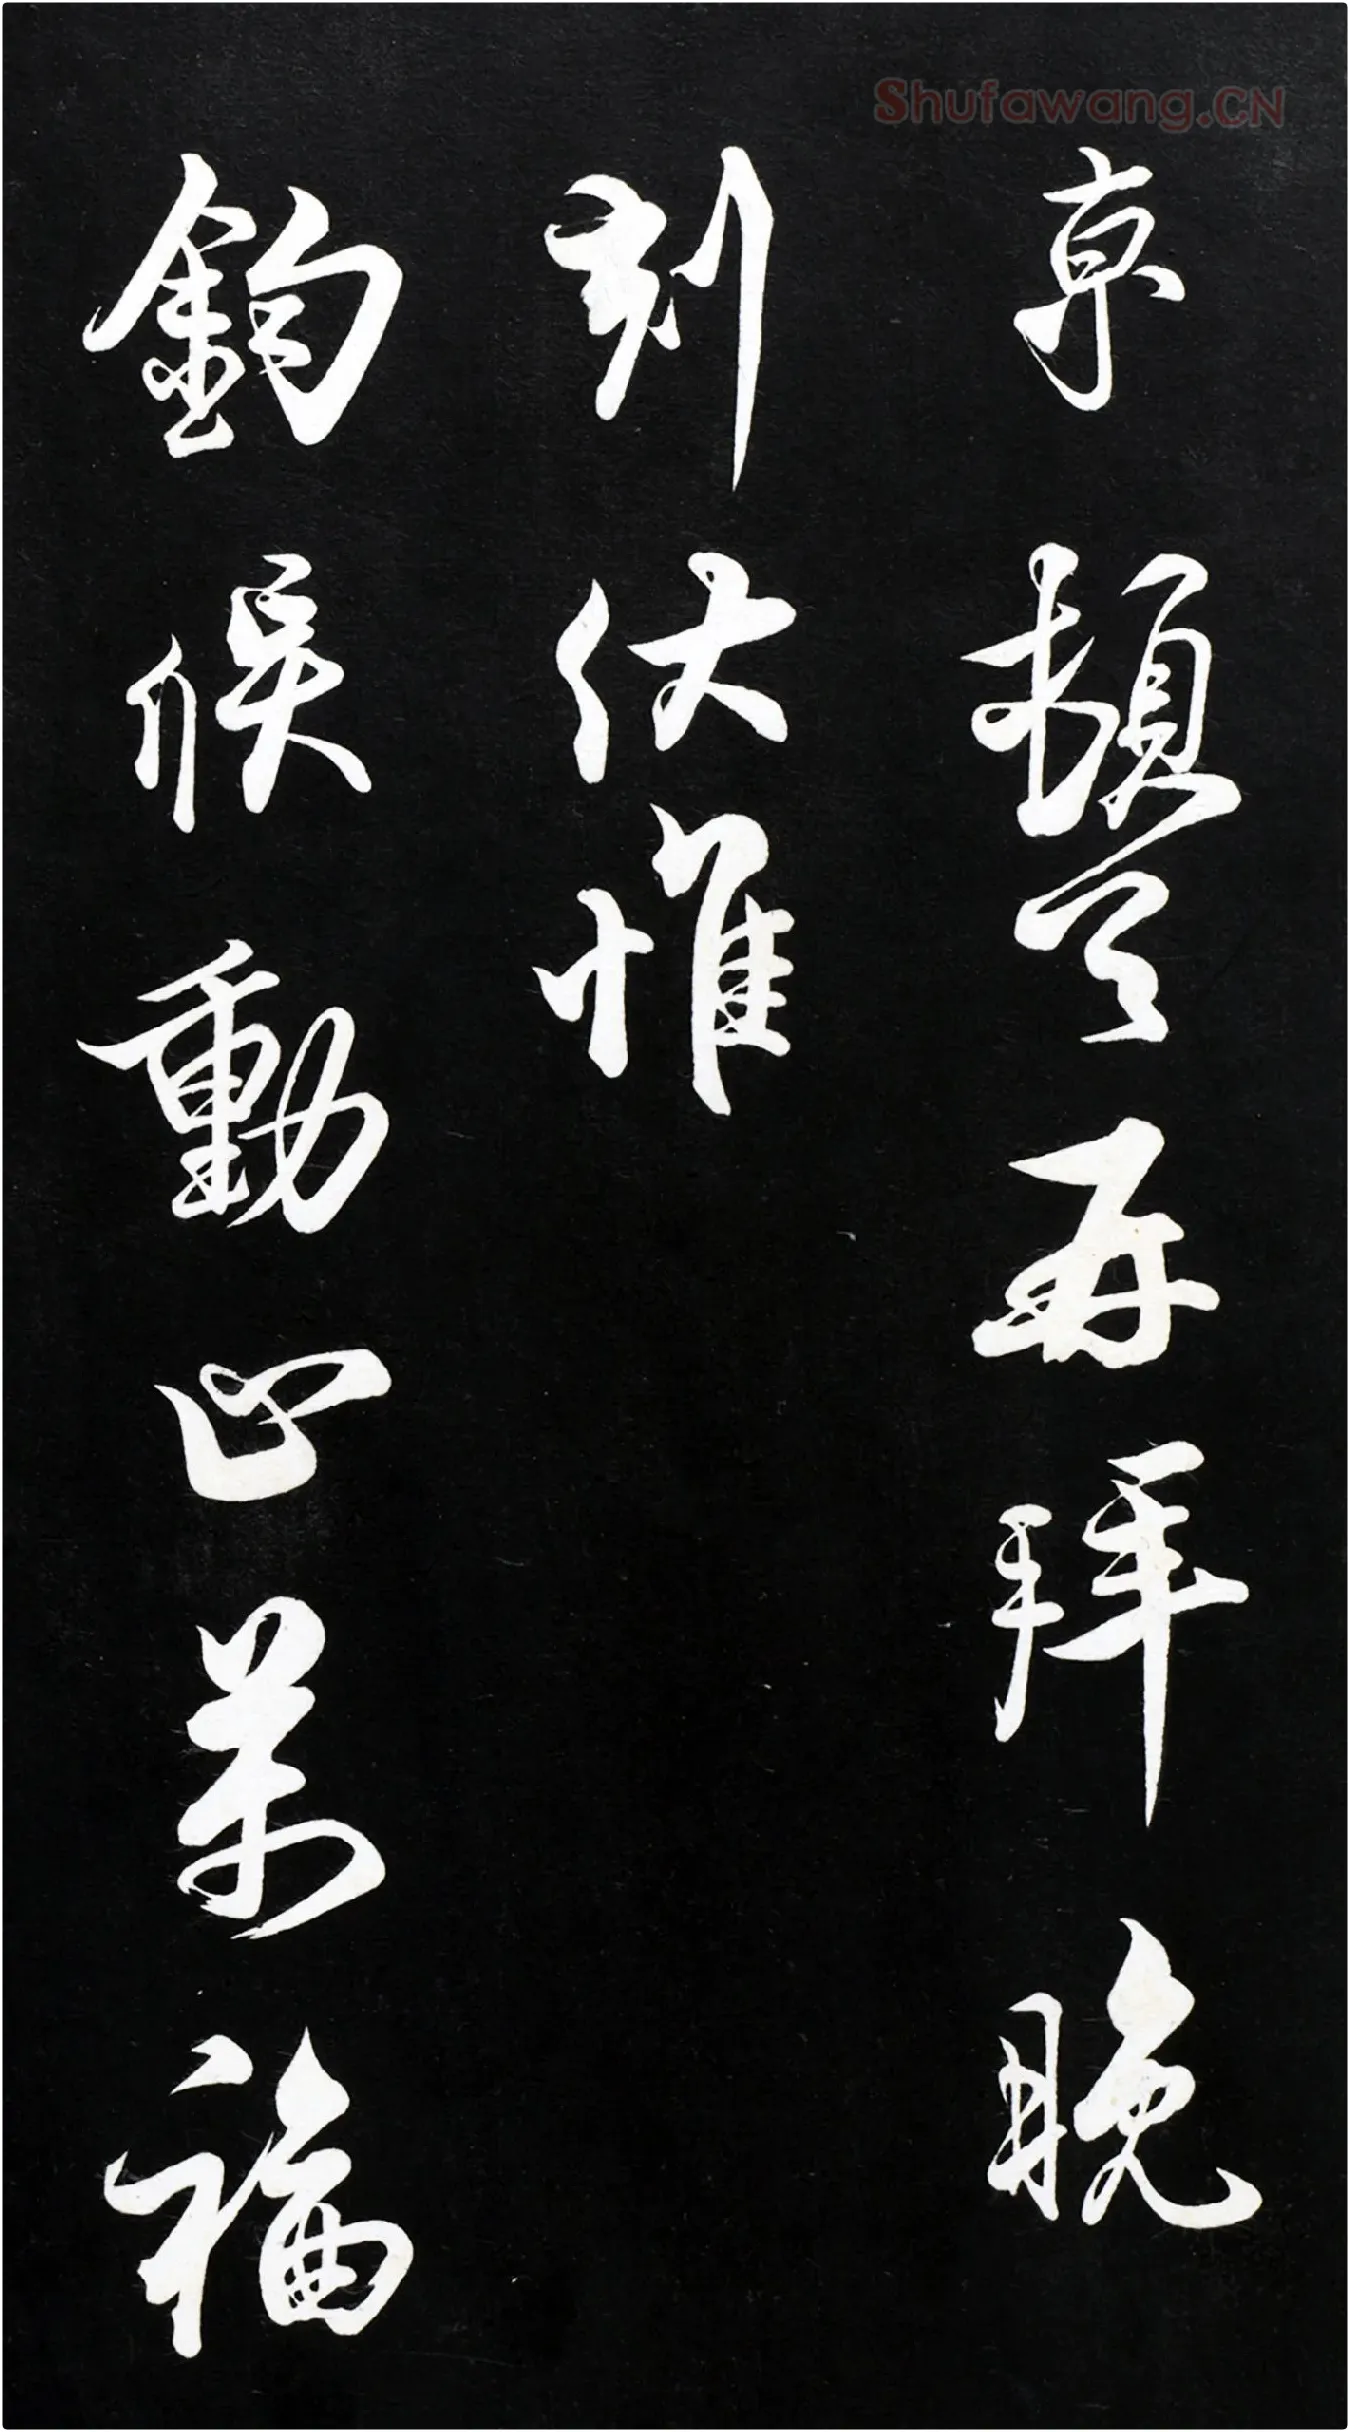 Shufawang.CN
京頓首再拜晚
刻伏惟
鈞候動止萬福